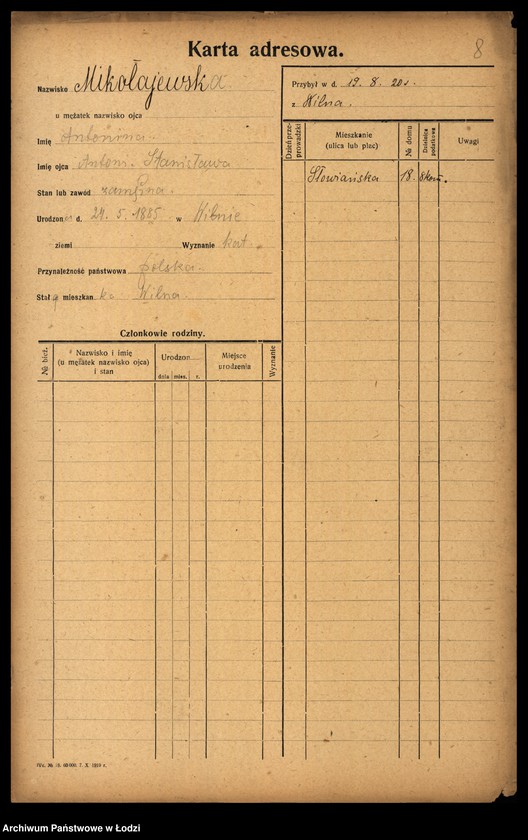 8
Karta adresowa.
Nazwisko Mikołajewska
u mężatek nazwisko ojca
Imię Antonina
Imię ojca Antoni. Stanisława
Stan lub zawód
Urodzona d. 24. 5. 1885 w Wilnie
ziemi Wyznanie kat.
Przynależność państwowa polska.
Stał mieszkan Wilna.
Przybył w d. 19. 8. 20 r.
z Wilna.
Dzień przeprowadzki
Mieszkanie (ulica lub plac)
№ domu
Dzielnica podatkowa
Uwagi
Słowiańska 18. 8 kom.
Członkowie rodziny.
№ bież.
Nazwisko i imię
(u mężatek nazwisko ojca)
i stan
Urodzon
dnia mies. r.
Miejsce
urodzenia
Wyznanie
60 000. 7. X. 1919 r.
Archiwum Państwowe w Łodzi